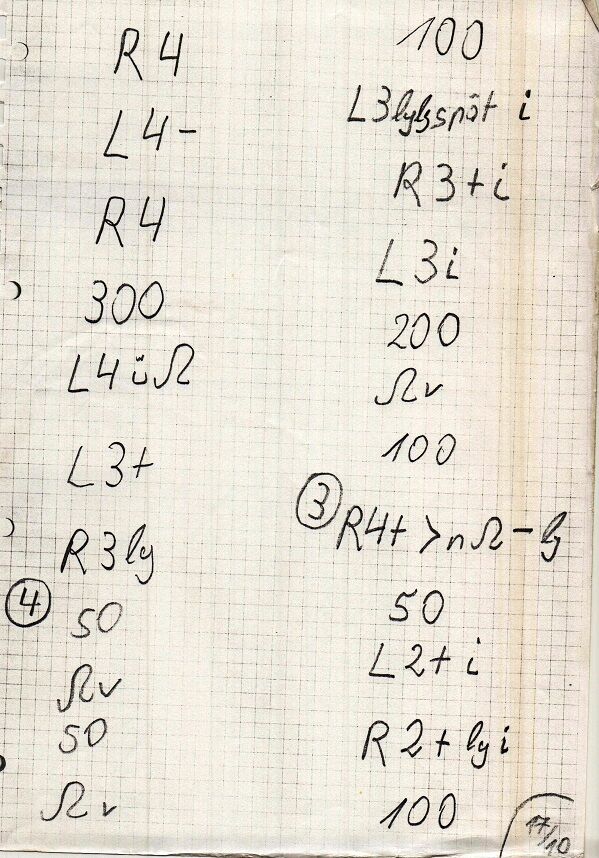 R4
L4-
R4
300
L4üΩ
L3+
R3ly
④ 50
Ωv
50
Ωv
100
L3lylgspät i
R3+i
L3i
200
Ωv
100
③ R4+ >nΩ-ly
50
L2+i
R2+lyi
100
17/10